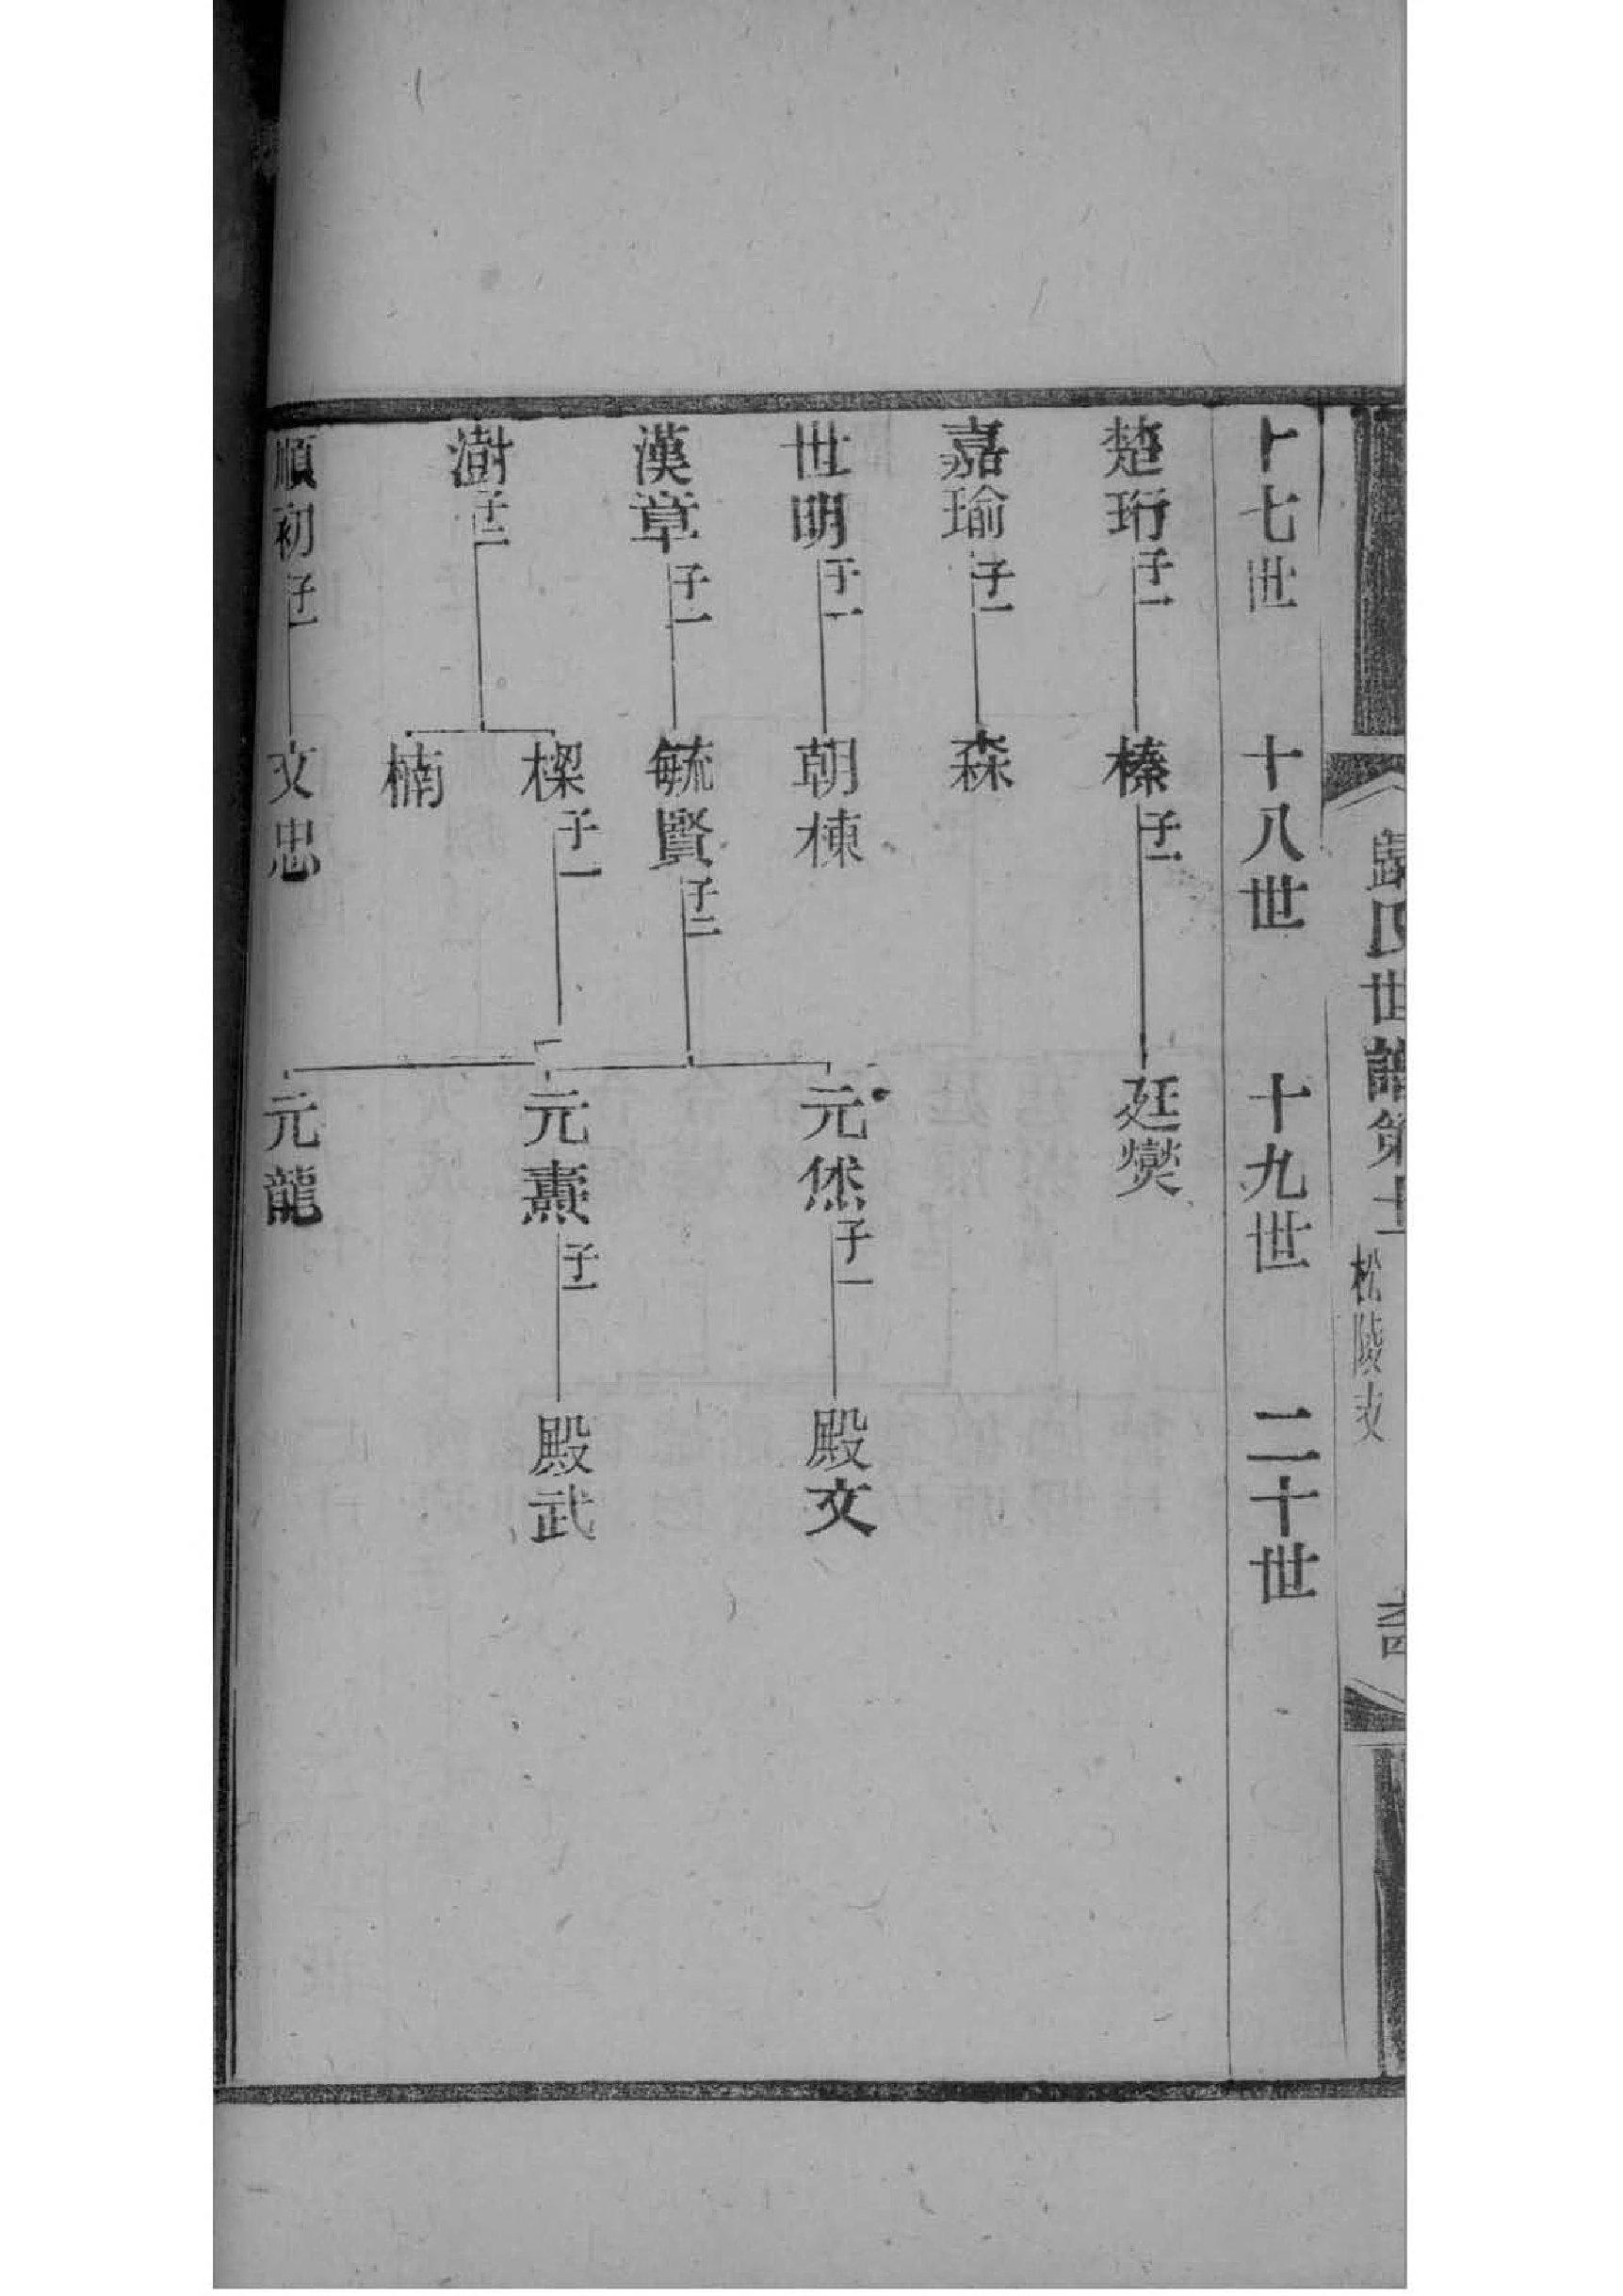 十七世
十八世
十九世
二十世
楚珩 子一
榛 子一
廷爕
嘉瑜 子一
森
世明 子一
朝棟
漢章 子一
毓賢 子二
元烋 子一
殿文
元燾 子一
殿武
澍 子二
樑 子一
楠
元龍
順初 子一
文忠
氏世譜第十
松陵支